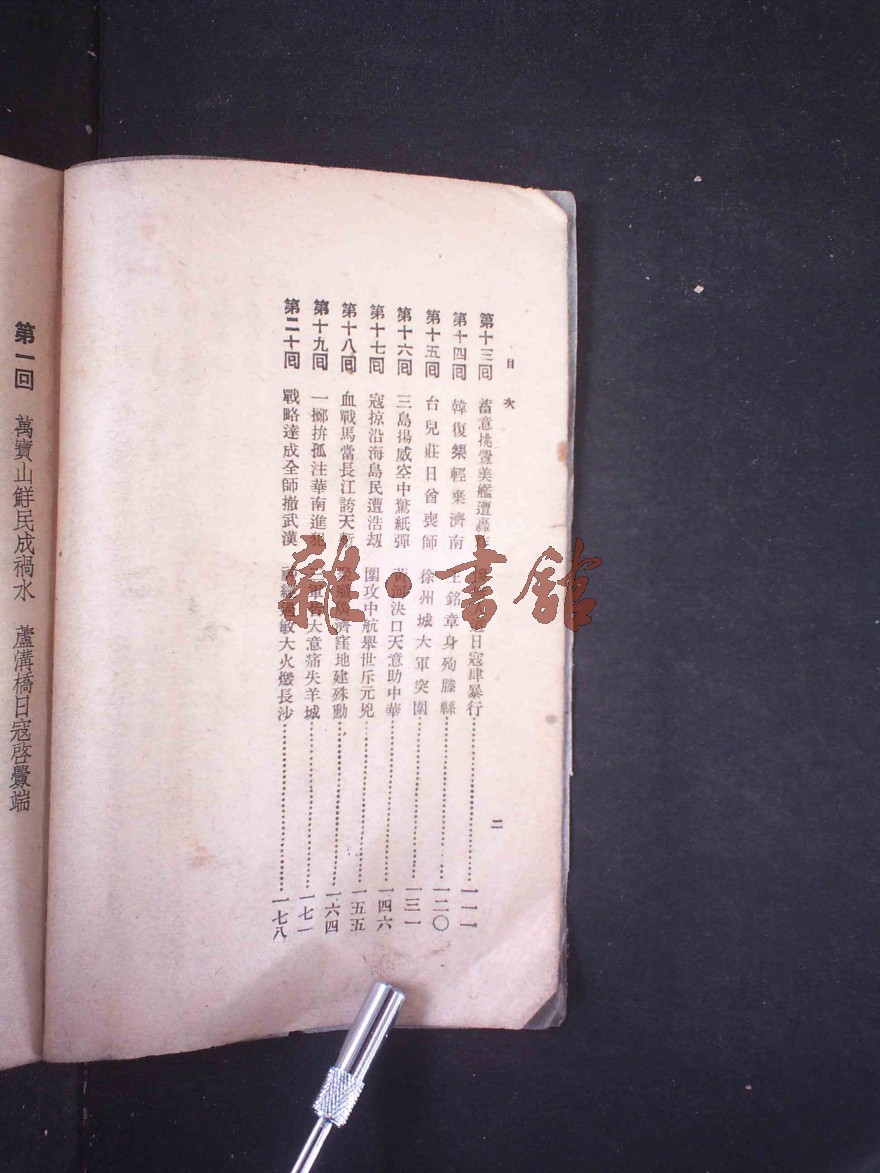 目次
第十三回 蓄意挑釁美艦遭轟 日寇肆暴行 一一一
第十四回 韓復榘輕棄濟南 王銘章身殉滕縣 一二〇
第十五回 台兒莊日酋喪師 徐州城大軍突圍 一三一
第十六回 三島揚威空中驚紙彈 黃河決口天意助中華 一四六
第十七回 寇掠沿海島民遭浩劫 圍攻中航舉世斥元兇 一五五
第十八回 血戰馬當長江誇天塹 廣濟窪地建殊勳 一六四
第十九回 一擲拚孤注華南進犯 大意痛失羊城 一七一
第二十回 戰略達成全師撤武漢 神經過敏大火燬長沙 一七八
二
第一回 萬寶山鮮民成禍水 蘆溝橋日寇啓釁端
雜·書館